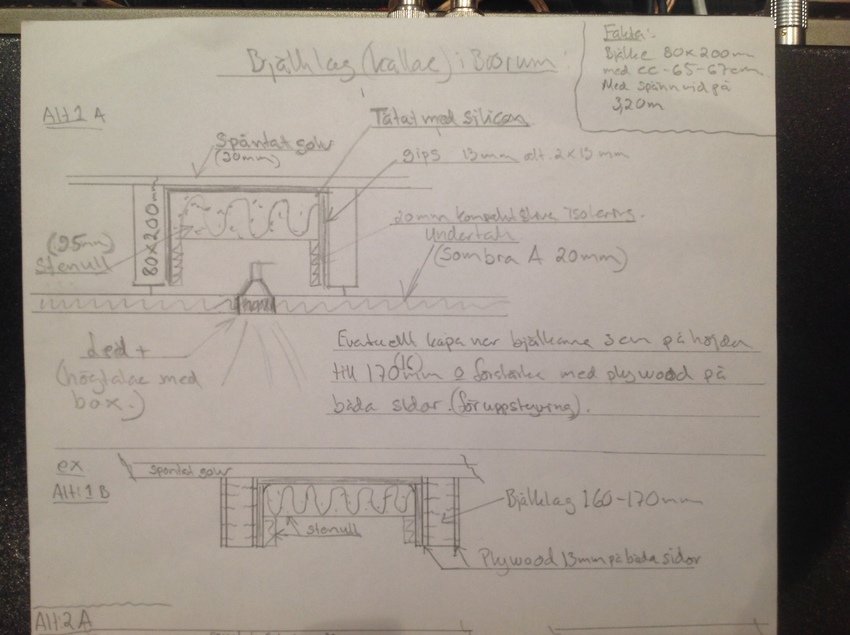 Bjälklag (källare) i Biorum:
Fakta:
Bjälke 80x200mm
med cc-65-67cm
Med spännvid på
3,20m
Alt:1 A
Tätat med silicon
Spåntat golv
(30mm)
gips 13mm alt. 2x13mm
80x200mm
20mm kompakt skiva isolering.
(95mm)
Stenull
Undertak
(Sombra A 20mm)
Led +
(högtalare med
box.)
Eventuellt kapa ner bjälkarna 3cm på höjden
till 170mm o förstärka med plywood på
(16)
båda sidor. (för uppstyvning).
ex
Alt:1 B
Spåntat golv
Bjälklag 160-170mm
Stenull
Plywood 13mm på båda sidor
Alt:2 A